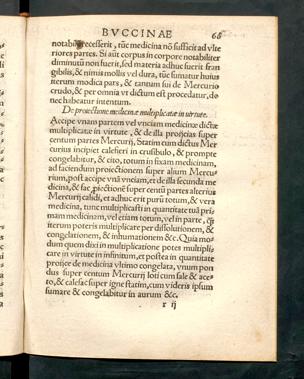 BVCCINAE 68
notabil recesserit, tūc medicina nō sufficit ad vlte
riores partes. Si aūt corpus in corpore notabiliter
diminutū non fuerit, sed materia adhuc fuerit fran
gibilis, & nimis mollis vel dura, tūc sumatur huius
iterum modica pars, & cantum sui de Mercurio
crudo, & per omnia vt dictum est procedatur, do
nec habeatur intentum.
De proiectione medicinæ multiplicatæ in virtute.
Accipe vnam partem vel vnciam medicinæ dictæ
multiplicatæ in virtute, & de illa projicias super
centum partes Mercurij. Statim cum dictus Mer
curius incipiet calefieri in crusibulo, & prompte
congelabitur, & cito, totum in fixam medicinam,
ad faciendum proiectionem super alium Mercu
rium, post accipe vnā vnciam, et de illa secunda me
dicina, & fac ꝓiectionē super centū partes alterius
Mercurij calidi, et adhuc erit purū totum, & vera
medicina, tunc multiplicasti in quantitate tuā pri
mam medicinam, vel etiam totum, vel in parte, ꝙ
iterum poteris multiplicare per dissolutionem, &
congelationem, & inhumationem &c. Quia mo
dum quem dixi in multiplicatione potes multipli
care in virtute in infinitum, et postea in quantitate
projice de medicina vltimo congelata, vnum pon
dus super centum Mercurij loti cum sale & ace
to, & calefac super igne statim, cum videris ipsum
fumare & congelabitur in aurum &c.
r ij